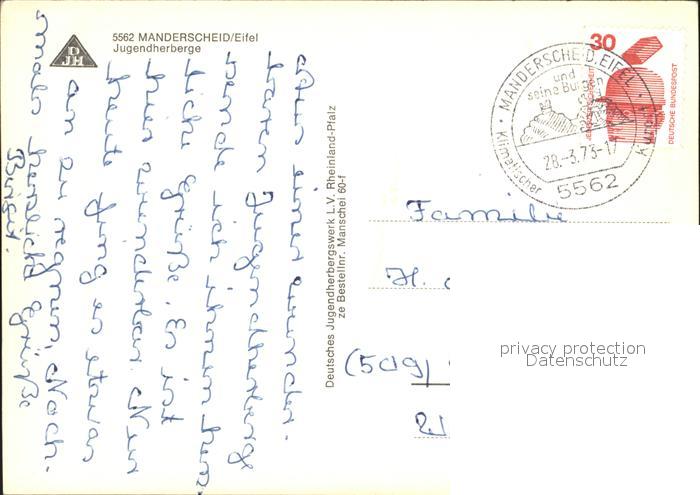 5562 MANDERSCHEID/Eifel
Jugendherberge
DJH
Aus einer wunder-
baren Jugendherberge
sende ich Ihnen herz-
liche Grüße. Es ist
hier wunderbar. Nur
heute fing es etwas
an zu regnen. Noch-
mals herzliche Grüße
Birgit.
Deutsches Jugendherbergswerk L.V. Rheinland-Pfalz
ze Bestellnr. Manschei 60-f
30
DEUTSCHE BUNDESPOST
MANDERSCHEID, EIFEL
und
seine Burgen
28.-3.73-17
Klimatischer Kurort
5562
Familie
H.
(509)
privacy protection
Datenschutz